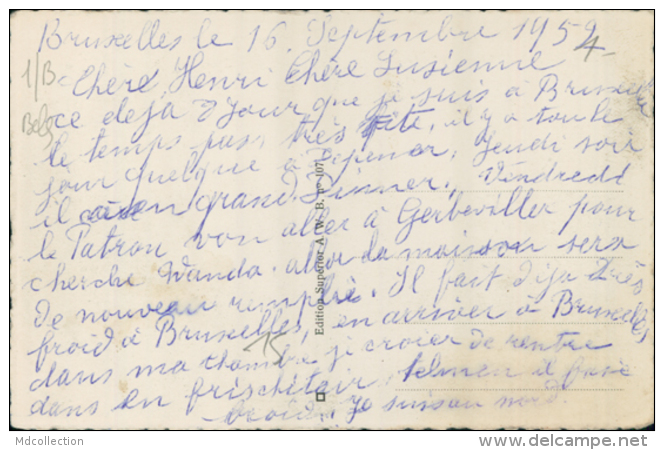 Bruxelles le 16. Septembre 1954
1/B Chère Henri Chère Lusienne
Belg ce deja 8 Jour que je suis à Bruxelles
le temps pas, très vite, il y a tou le
jour quelque à Depener, Jeudi soir
il un grand Dinner, Vendredi
le Patron von aller à Gerbeviller pour
cherche Wanda. alor la maison sera
de nouveau remplie. Il fait deja très
froid à Bruxelles, en arriver à Bruxelles
dans ma chambre je croier de rentre
dans en frischetair, telmen il faisé
froid. Je suis au nord.
15
Edition Superior A. W. B. n° 107
Mdcollection
www.delcampe.net